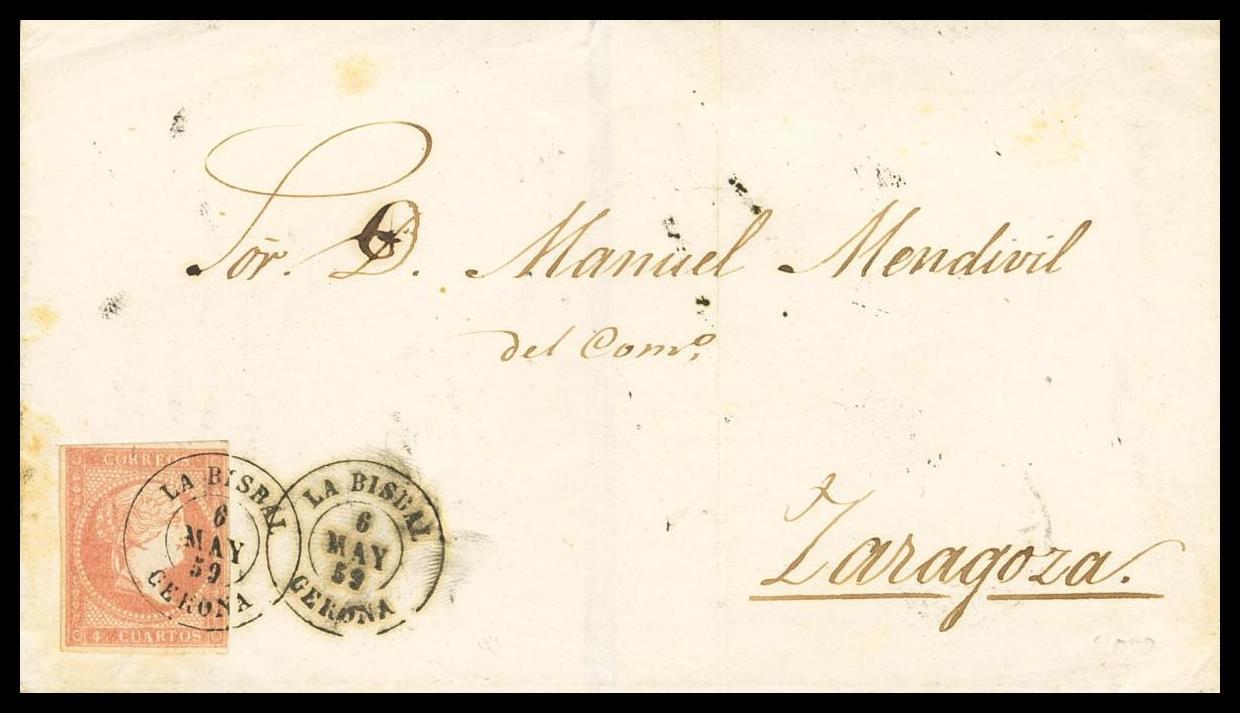 Sor. D. Manuel Mendivil
del Como,
Zaragoza.
CORREOS
4 CUARTOS
LA BISBAL
6
MAY
59
GERONA
LA BISBAL
6
MAY
59
GERONA